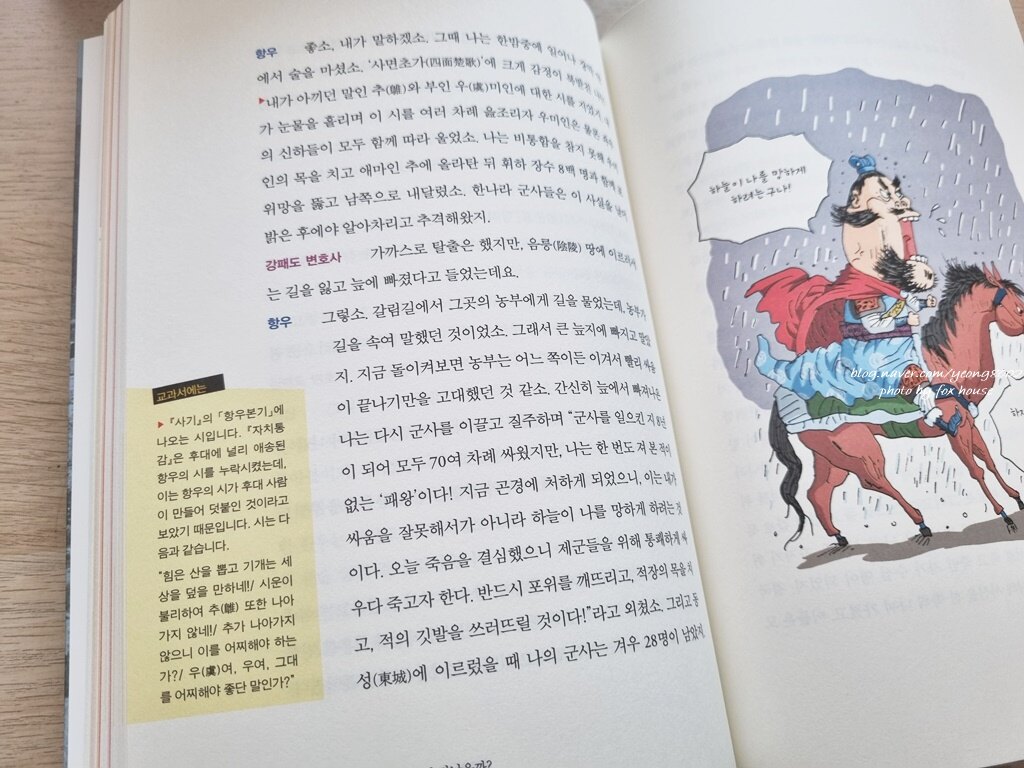 항우 좋소, 내가 말하겠소. 그때 나는 한밤중에 일어나 장막
에서 술을 마셨소. '사면초가(四面楚歌)'에 크게 감정이 북받친
▶내가 아끼던 말인 추(騅)와 부인 우(虞)미인에 대한 시를 지었지. 내
가 눈물을 흘리며 이 시를 여러 차례 읊조리자 우미인은 물론 좌우
의 신하들이 모두 함께 따라 울었소. 나는 비통함을 참지 못해 우미
인의 목을 치고 애마인 추에 올라탄 뒤 휘하 장수 8백 명과 함께 포
위망을 뚫고 남쪽으로 내달렸소. 한나라 군사들은 이 사실을 날이
밝은 후에야 알아차리고 추격해왔지.
강패도 변호사 가까스로 탈출은 했지만, 음릉(陰陵) 땅에 이르러서
는 길을 잃고 늪에 빠졌다고 들었는데요.
항우 그렇소. 갈림길에서 그곳의 농부에게 길을 물었는데, 농부가
길을 속여 말했던 것이었소. 그래서 큰 늪지에 빠지고 말았
지. 지금 돌이켜보면 농부는 어느 쪽이든 이겨서 빨리 싸움
이 끝나기만을 고대했던 것 같소. 간신히 늪에서 빠져나온
나는 다시 군사를 이끌고 질주하며 “군사를 일으킨 지 8년
이 되어 모두 70여 차례 싸웠지만, 나는 한 번도 져 본 적이
없는 '패왕'이다! 지금 곤경에 처하게 되었으니, 이는 내가
싸움을 잘못해서가 아니라 하늘이 나를 망하게 하려는 것
이다. 오늘 죽음을 결심했으니 제군들을 위해 통쾌하게 싸
우다 죽고자 한다. 반드시 포위를 깨뜨리고, 적장의 목을 치
고, 적의 깃발을 쓰러뜨릴 것이다!”라고 외쳤소. 그리고 동
성(東城)에 이르렀을 때 나의 군사는 겨우 28명이 남았지.
교과서에는
▶ 『사기』의 「항우본기」에
나오는 시입니다. 『자치통
감』은 후대에 널리 애송된
항우의 시를 누락시켰는데,
이는 항우의 시가 후대 사람
이 만들어 덧붙인 것이라고
보았기 때문입니다. 시는 다
음과 같습니다.
“힘은 산을 뽑고 기개는 세
상을 덮을 만하네!/ 시운이
불리하여 추(騅) 또한 나아
가지 않네!/ 추가 나아가지
않으니 이를 어찌해야 하는
가?/ 우(虞)여, 우여, 그대
를 어찌해야 좋단 말인가?”
하늘이 나를 망하게
하려는구나!
photo by fox house